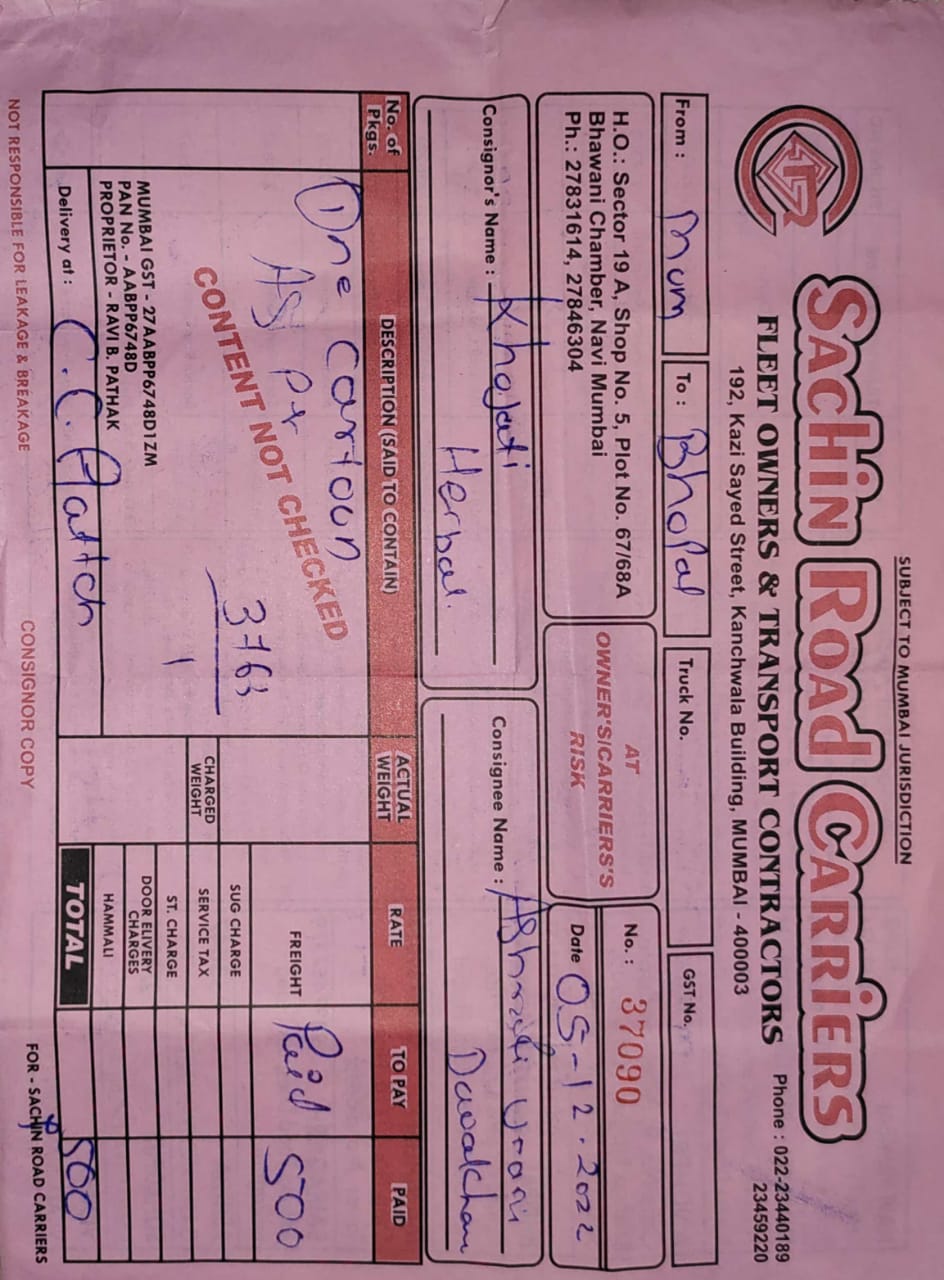 SUBJECT TO MUMBAI JURISDICTION
SACHIN ROAD CARRIERS
FLEET OWNERS & TRANSPORT CONTRACTORS
Phone : 022-23440189
23459220
192, Kazi Sayed Street, Kanchwala Building, MUMBAI - 400003
From : Mum To : Bhopal Truck No. GST No.
H.O.: Sector 19 A, Shop No. 5, Plot No. 67/68A
Bhawani Chamber, Navi Mumbai
Ph.: 27831614, 27846304
AT
OWNER'S/CARRIERS'S
RISK
No.: 37090
Date 05-12-2022
Consignor's Name : Khojati
Herbal.
Consignee Name : Ashrafi
Dawakhan
No. of Pkgs. DESCRIPTION (SAID TO CONTAIN) ACTUAL WEIGHT RATE TO PAY PAID
One Cartoon
As Pr
3763
CONTENT NOT CHECKED
FREIGHT Paid 500
SUG CHARGE
CHARGED WEIGHT SERVICE TAX
ST. CHARGE
DOOR ELIVERY CHARGES
HAMMALI
TOTAL 500
MUMBAI GST - 27AABPP6748D1ZM
PAN No. - AABPP6748D
PROPRIETOR - RAVI B. PATHAK
Delivery at : C.C.
NOT RESPONSIBLE FOR LEAKAGE & BREAKAGE
CONSIGNOR COPY
FOR - SACHIN ROAD CARRIERS